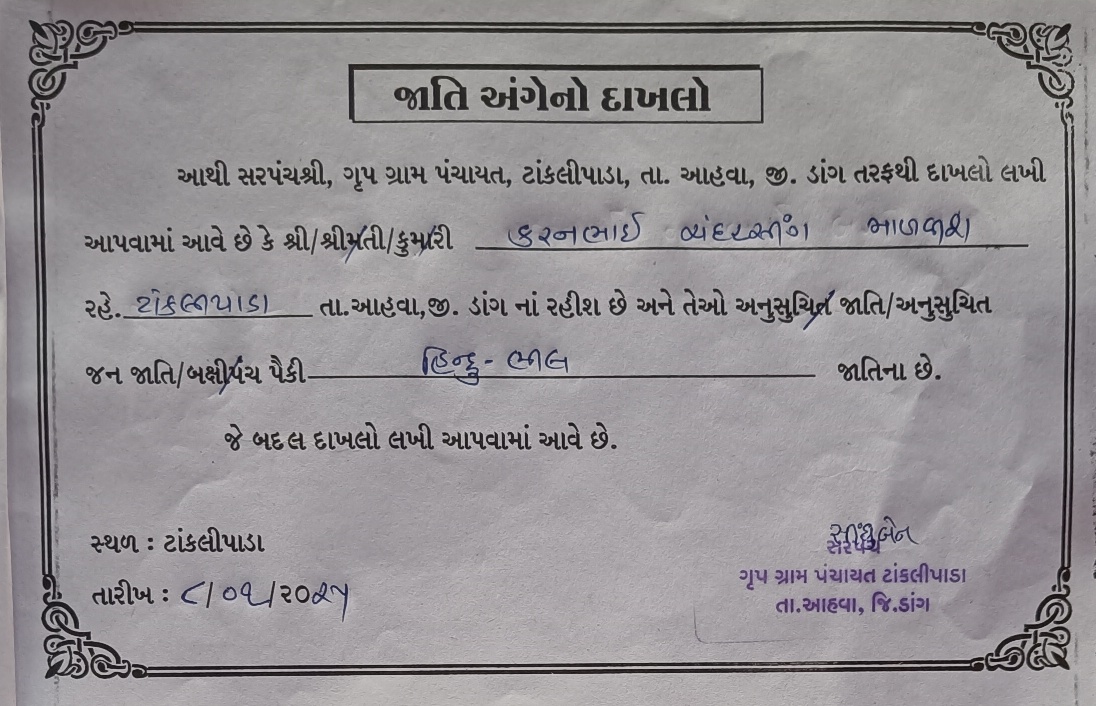 જાતિ અંગેનો દાખલો
આથી સરપંચશ્રી, ગૃપ ગ્રામ પંચાયત, ટાંકલીપાડા, તા. આહવા, જી. ડાંગ તરફથી દાખલો લખી
આપવામાં આવે છે કે શ્રી/શ્રીમતી/કુમારી કરનભાઈ ચંદરસીંગ
રહે. ટાંકલીપાડા તા.આહવા,જી. ડાંગ નાં રહીશ છે અને તેઓ અનુસુચિત જાતિ/અનુસુચિત
જન જાતિ/બક્ષીપંચ પૈકી હિન્દુ - ભીલ જાતિના છે.
જે બદલ દાખલો લખી આપવામાં આવે છે.
સ્થળ : ટાંકલીપાડા
તારીખ : ૮/૦૧/૨૦૨૫
સરપંચ
ગૃપ ગ્રામ પંચાયત ટાંકલીપાડા
તા.આહવા, જિ.ડાંગ